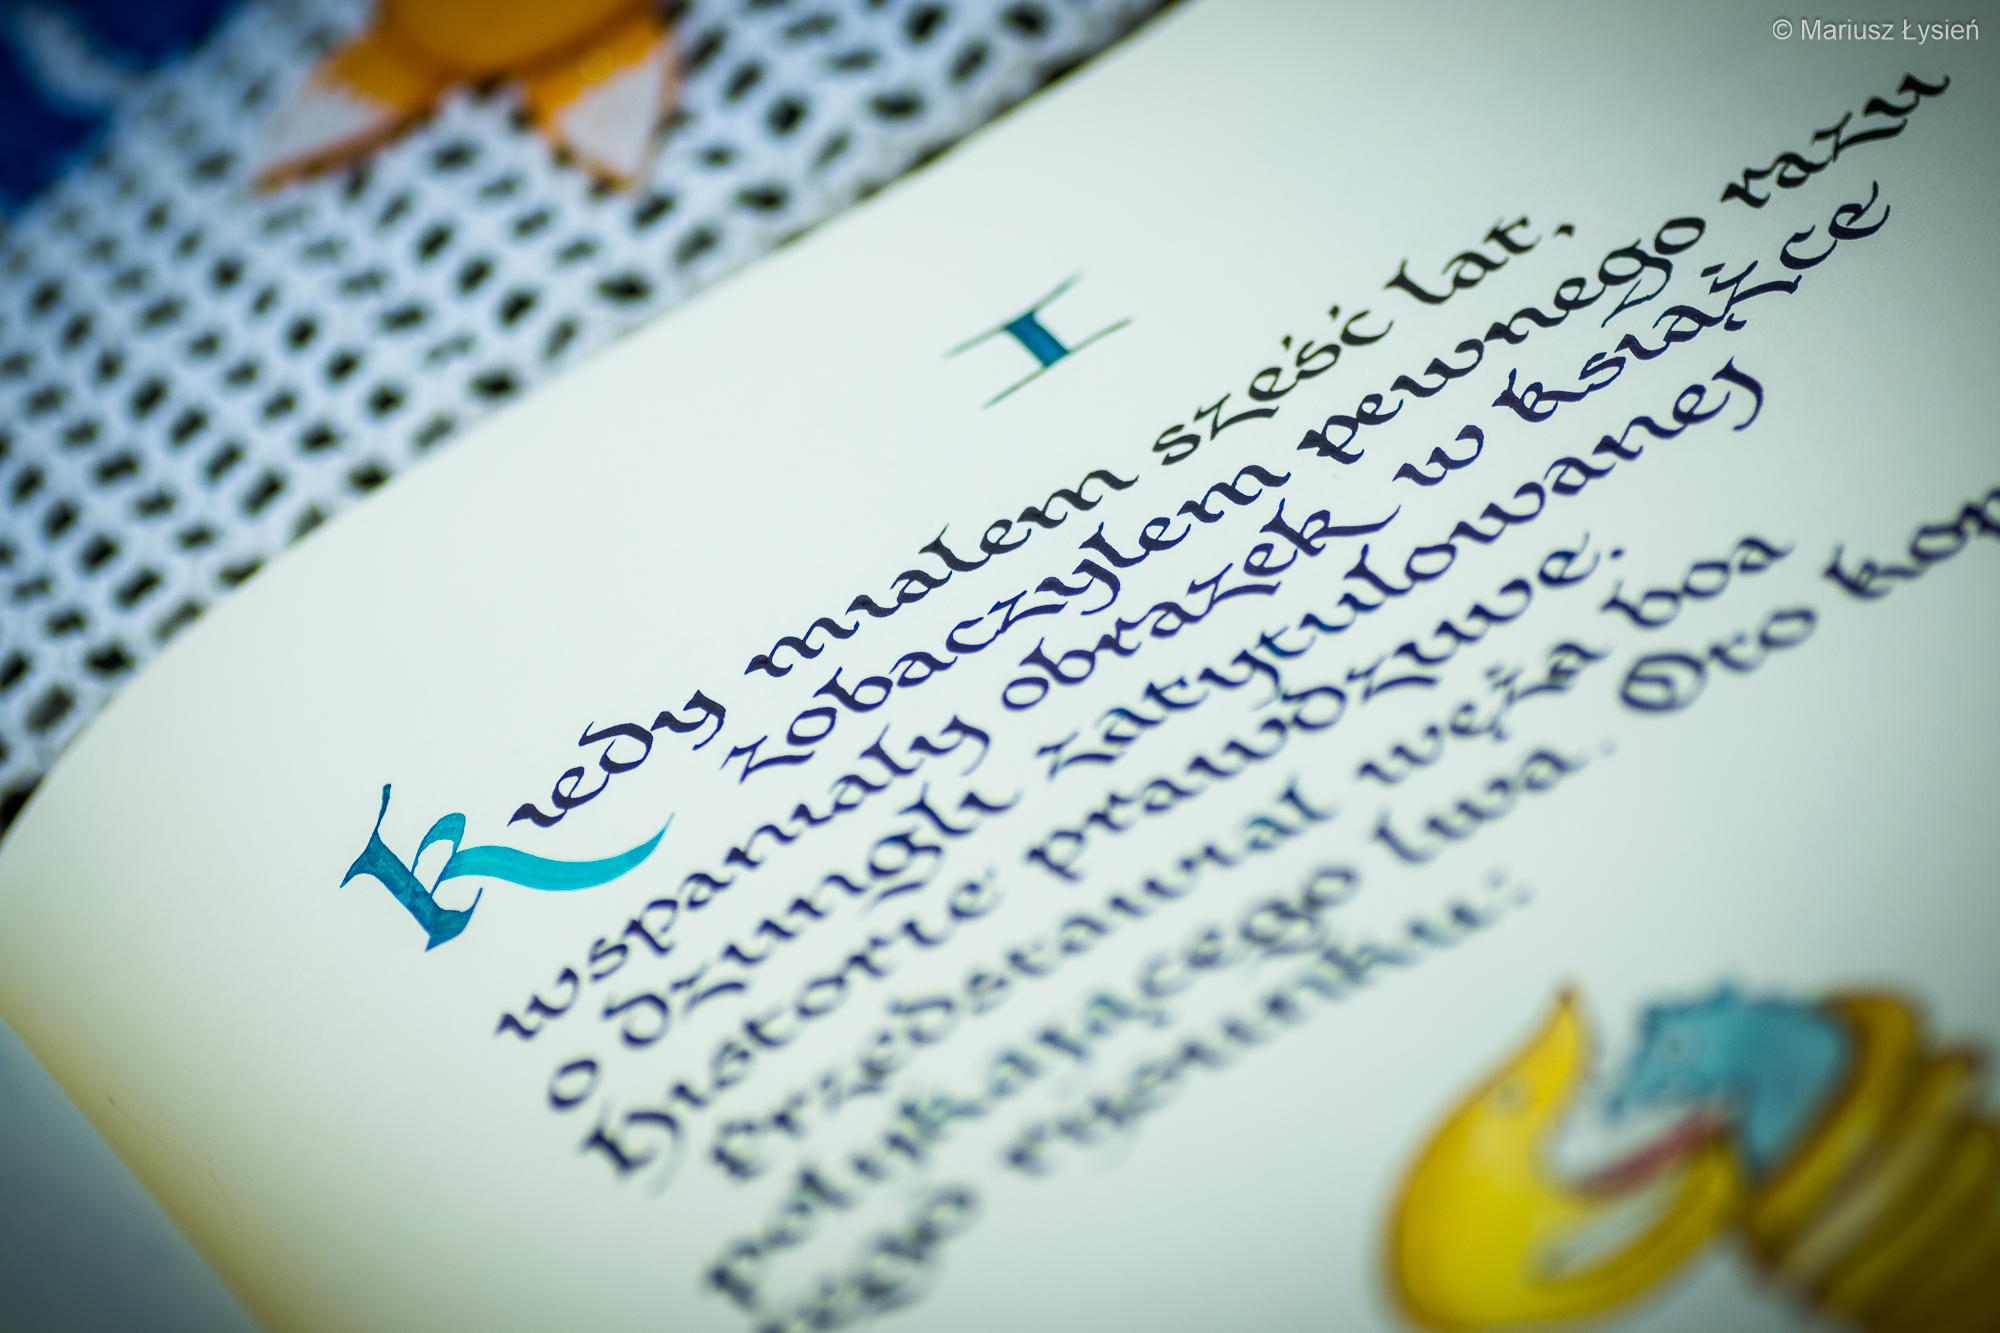 © Mariusz Łysień
I
Kiedy miałem sześć lat,
zobaczyłem pewnego razu
wspaniały obrazek w książce
o dżungli zatytułowanej
Historie prawdziwe.
Przedstawiał węża boa
połykającego lwa. Oto
tego rysunku: